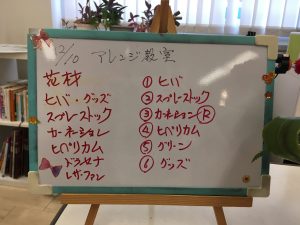 12/10 アレンジ教室
花材
ヒバ・グッズ
スプレーストック
カーネーション
ヒペリカム
ドラセナ
レザーファン
① ヒバ
② スプレーストック
③ カーネション Ⓡ
④ ヒペリカム
⑤ グリーン
⑥ グッズ